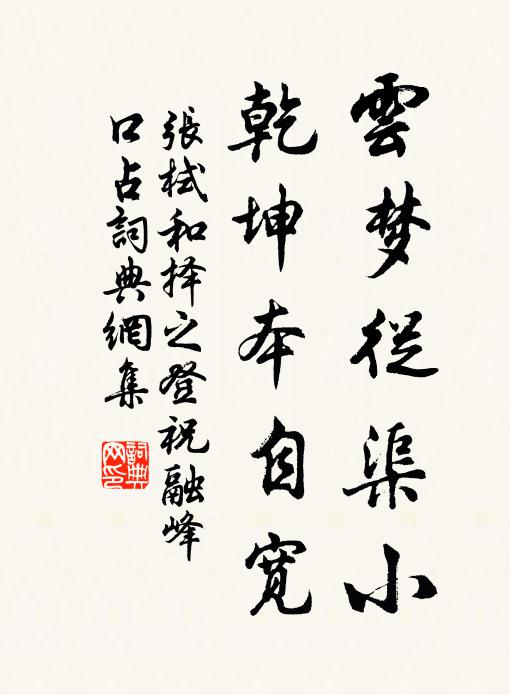 雲梦從渠小
乾坤本自寬
張栻和择之登祝融峰
口占詞典網集
詞典网印